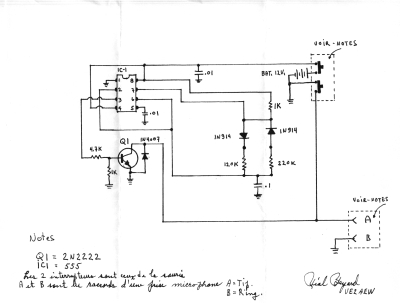 VOIR-NOTES
IC-1
.01
BAT. 12V.
1 8
2 7
3 6
4 5
.01
1K
Q1
1N4007
1N914
1N914
4.7K
1K
120K
220K
.1
VOIR-NOTES
A
B
Notes
Q1 = 2N2222
IC1 = 555
Les 2 interrupteurs sont ceux de la souris
A et B sont les raccords d'une prise microphone A = Tip.
B = Ring.
VE2AEW